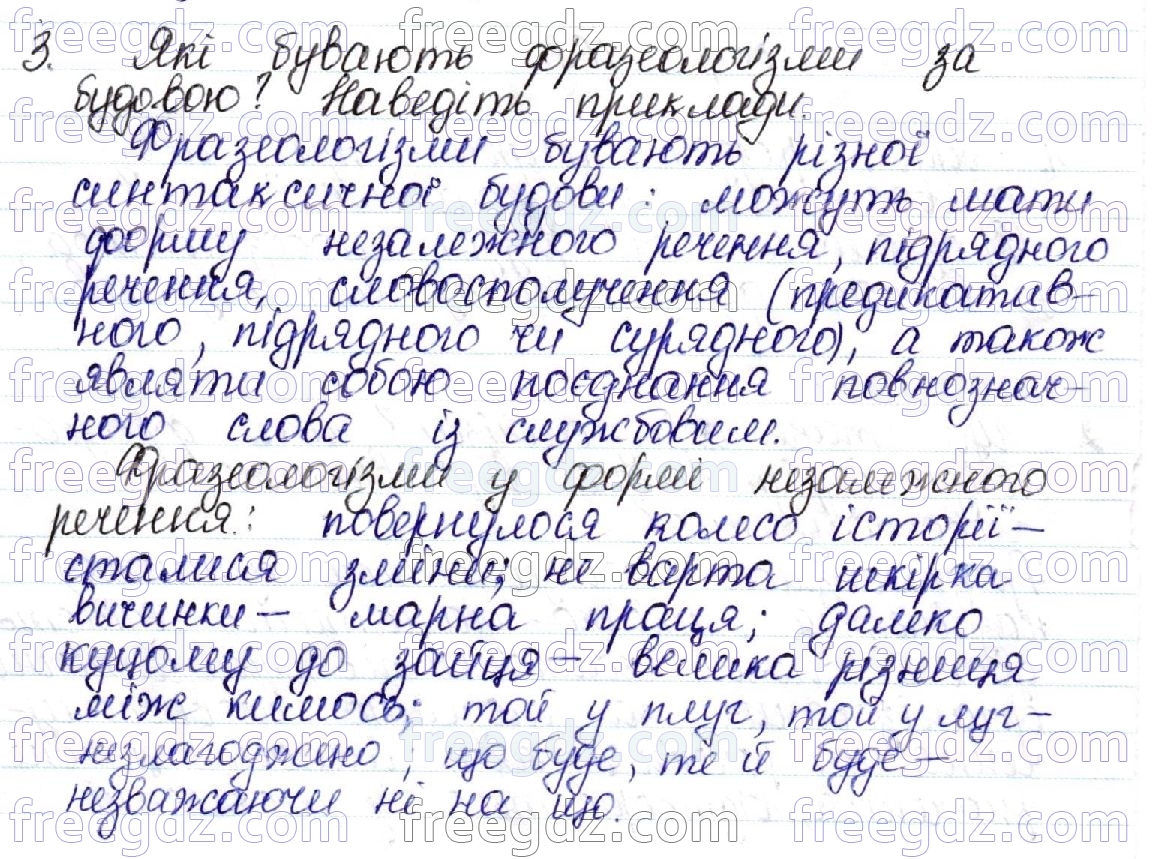 3. Які бувають фразеологізми за
будовою? Наведіть приклади.
Фразеологізми бувають різної
синтаксичної будови: можуть мати
форму незалежного речення, підрядного
речення, словосполучення (предикатив-
ного, підрядного чи сурядного), а також
являти собою поєднання повнознач-
ного слова із службовим.
Фразеологізми у формі незалежного
речення: повернулося колесо історії –
сталися зміни; не варта шкірка
вичинки – марна праця; далеко
куцому до зайця – велика різниця
між кимось; той у плуг, той у луг –
незлагоджено; що буде, те й буде –
незважаючи ні на що.
freegdz.com